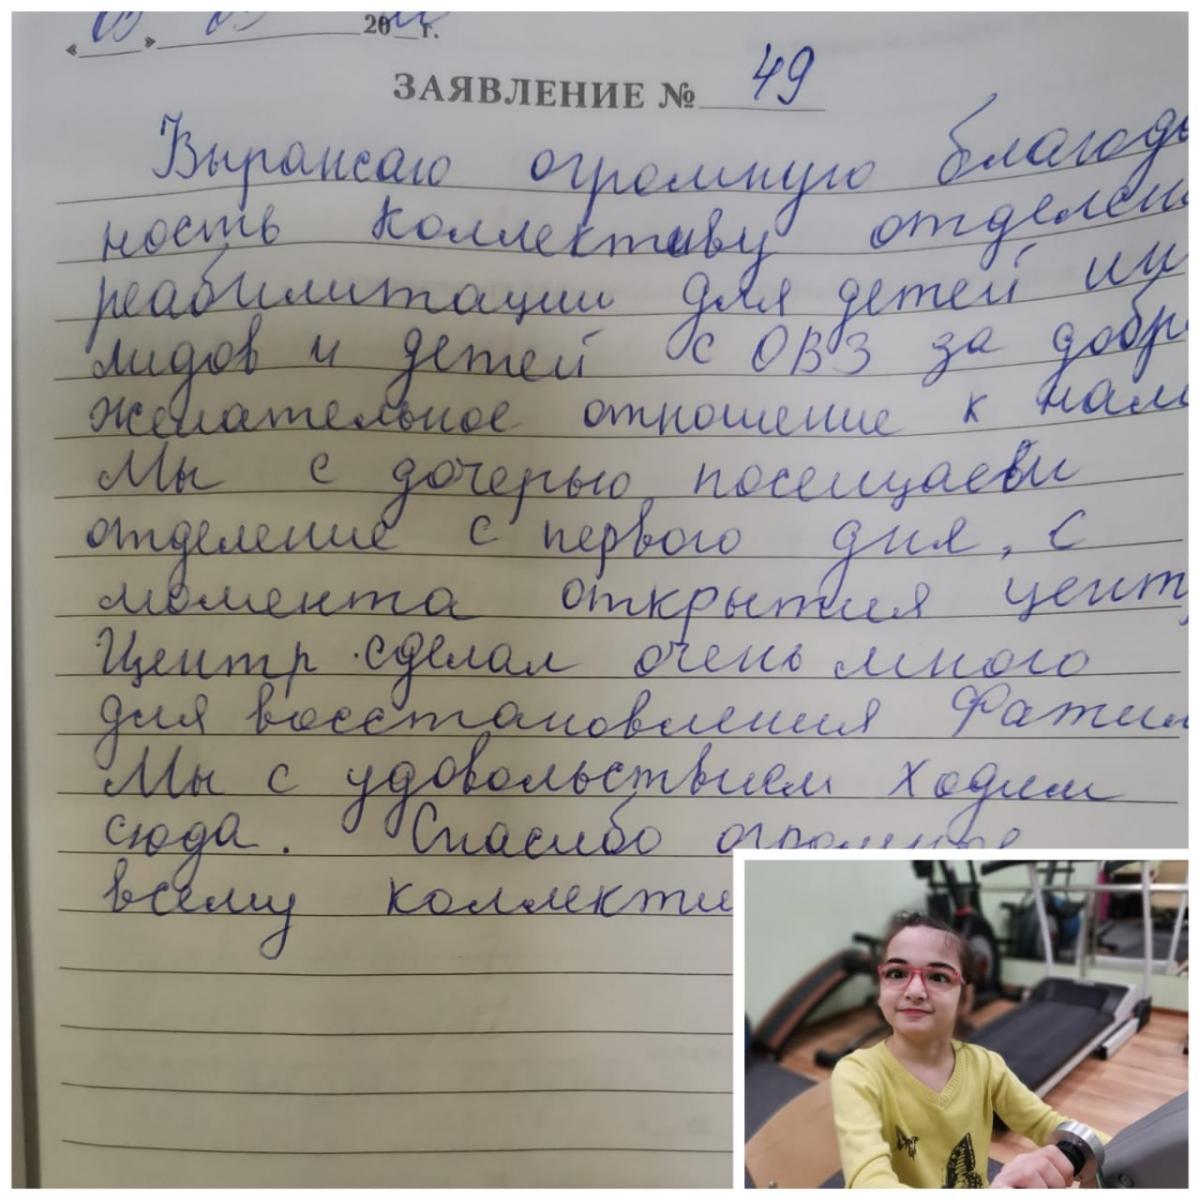 « 09 » 09 20 г.
ЗАЯВЛЕНИЕ № 49
Выражаю огромную благода
ность коллективу отделен
реабилитации для детей ин
лидов и детей с ОВЗ за добр
желательное отношение к нам
Мы с дочерью посещаем
отделение с первого дня, с
момента открытия цент
Центр сделал очень много
для восстановления Фатим
Мы с удовольствием ходим
сюда. Спасибо огромное
всему коллекти